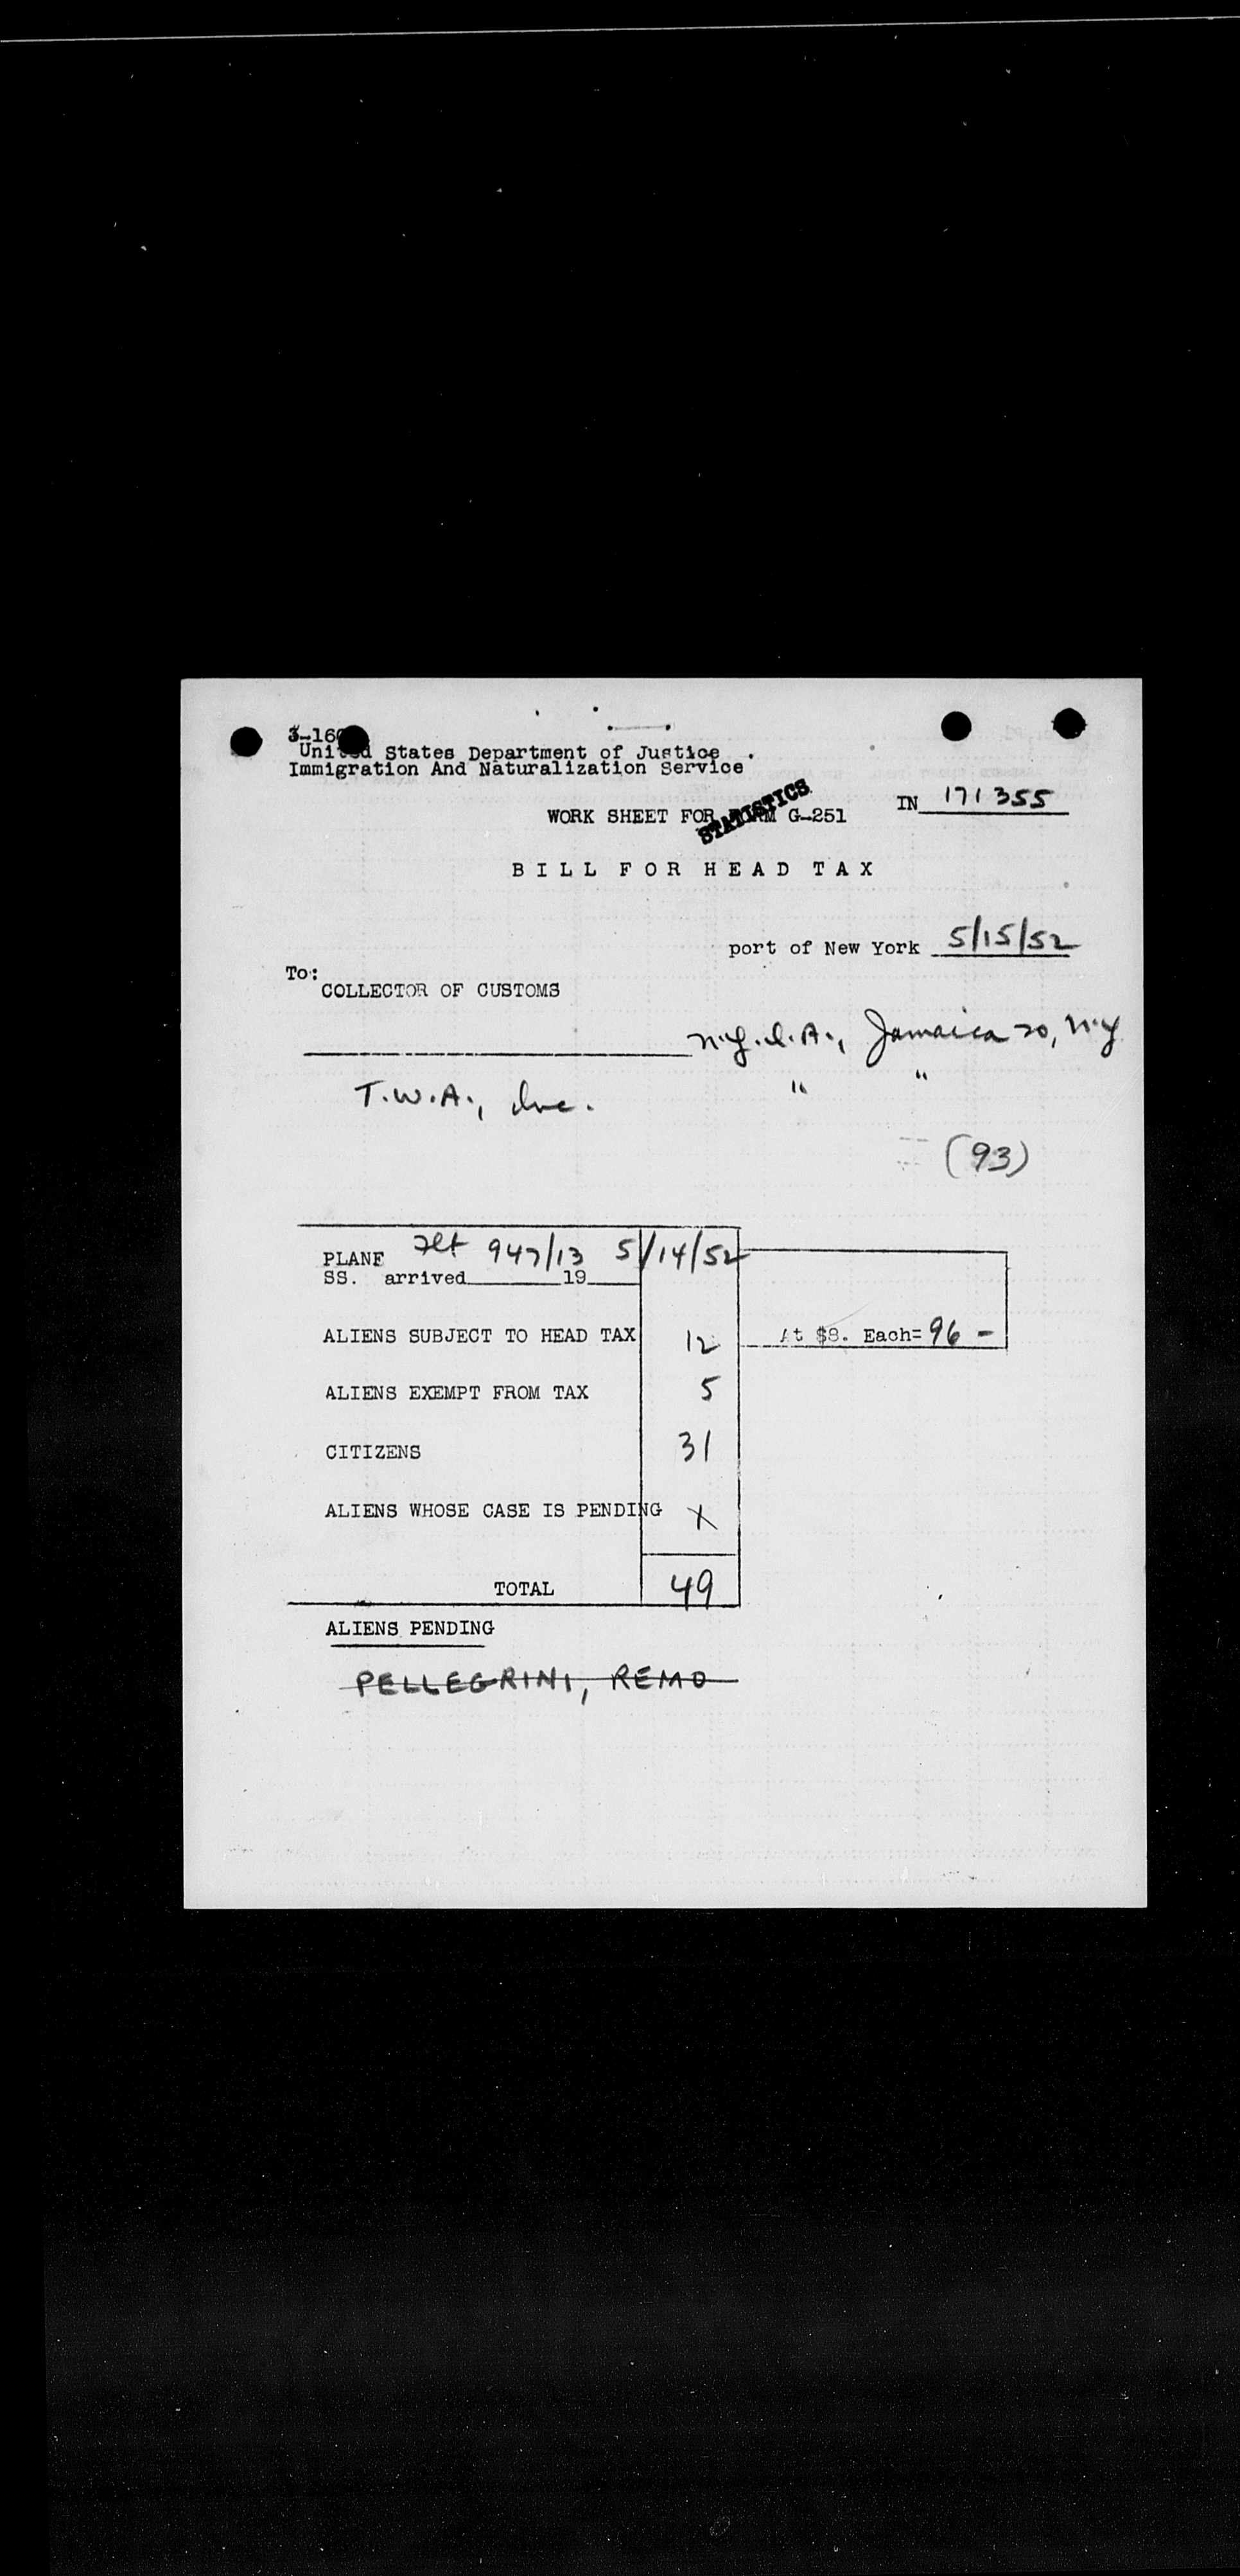 3-160
United States Department of Justice
Immigration And Naturalization Service
STATISTICS
WORK SHEET FOR FORM G-251
IN 171355
BILL FOR HEAD TAX
port of New York 5/15/52
To:
COLLECTOR OF CUSTOMS
N.Y.I.A., Jamaica 20, N.Y
T.W.A., Inc. " "
(93)
PLANE Flt 947/13 5/14/52
SS. arrived 19
ALIENS SUBJECT TO HEAD TAX 12 At $8. Each= 96 -
ALIENS EXEMPT FROM TAX 5
CITIZENS 31
ALIENS WHOSE CASE IS PENDING X
TOTAL 49
ALIENS PENDING
PELLEGRINI, REMO